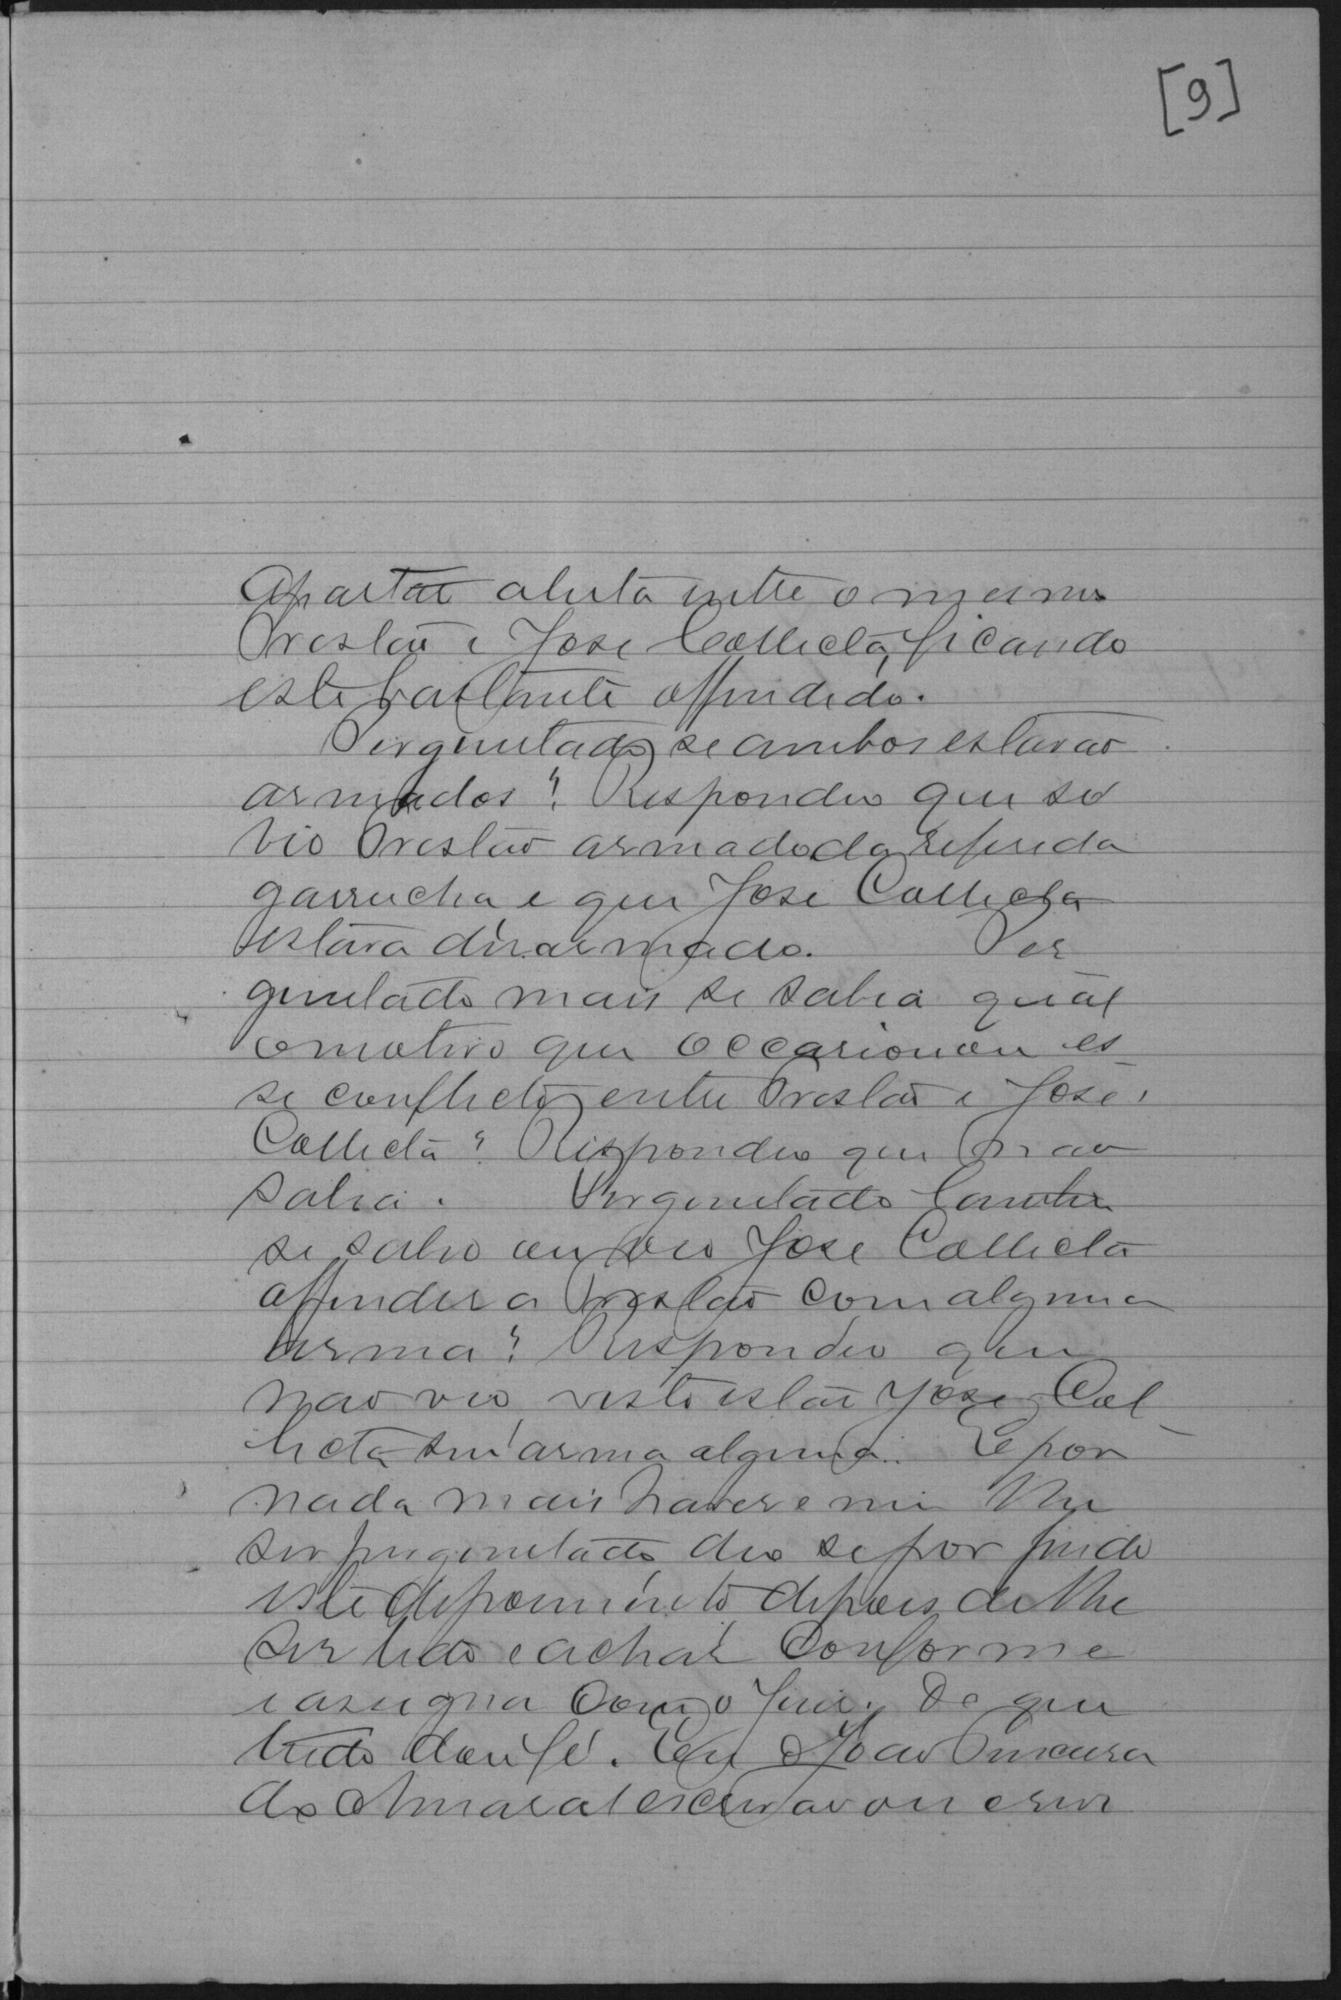 [9]
Apartar aluta entre o mesmo
Orestão e Jose Collecta, ficando
este bastante offendido.
Perguntado se ambos estavão
armados? Respondeo que só
vio Orestão armado da referida
garrucha e que Jose Collecta
estava disarmado. Per
guntado mais se sabia qual
omotivo que occasionou es
se conflicto entre Orestão e José
Collecta? Respondeo que não
sabia. Perguntado
se sabe ou veo Jose Collecta
offender a Orestão com alguma
arma? Respondeo que
não veo visto estar Jose Col
lecta sem arma alguma. E por
nada mais haver e nem lhe
ser perguntado deo se por findo
este depoimento depois de lhe
ser lido e achar conforme
e assigna com o Juiz. Do que
tudo dou fé. Eu João
do Amaral escrivão